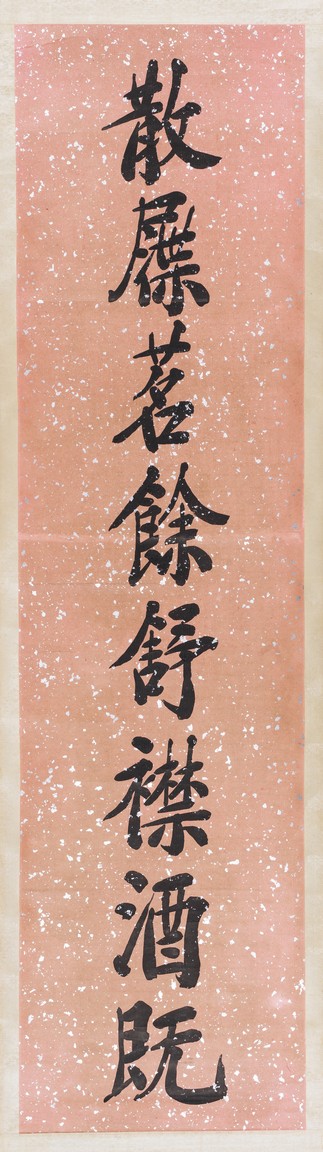 散屧茗餘舒襟酒既